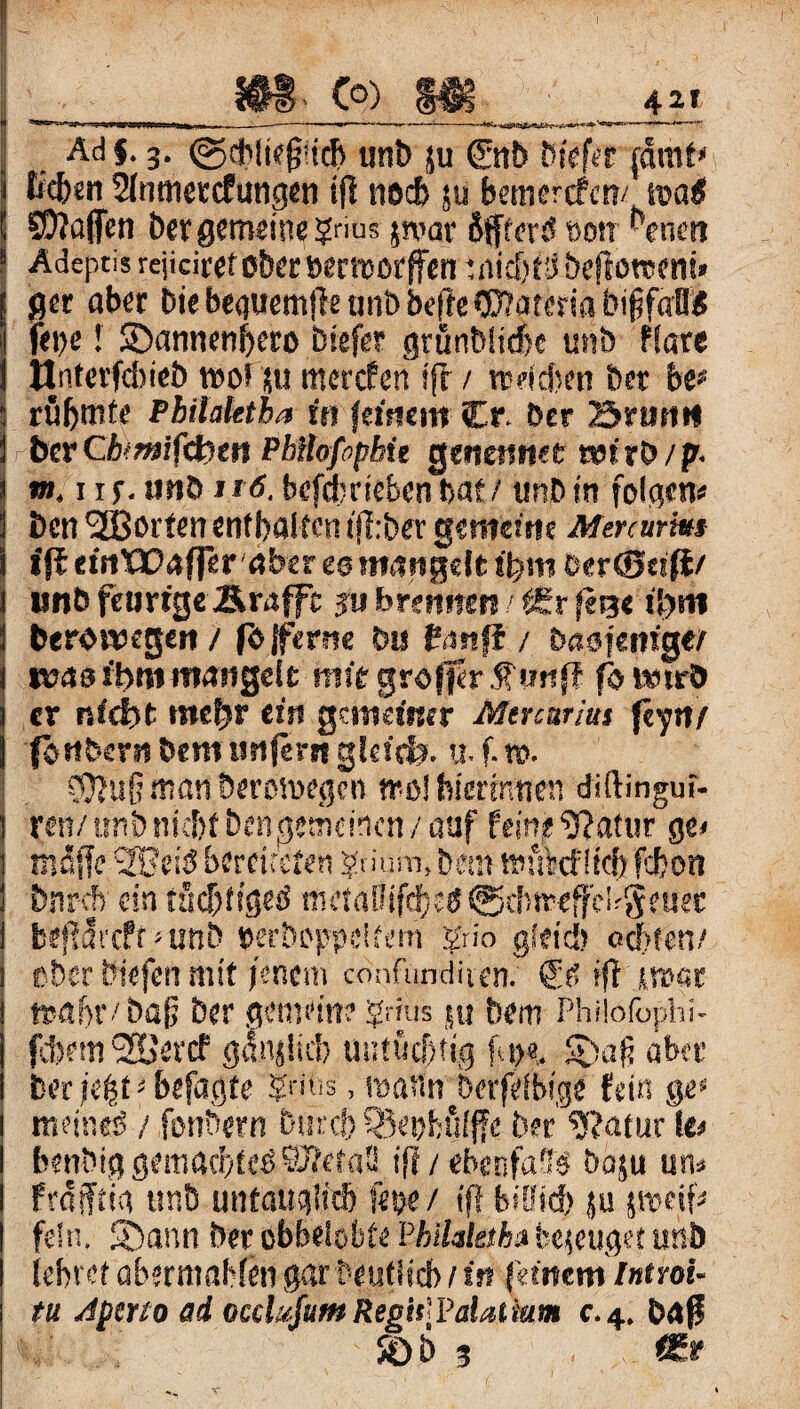 (o) 421
Ad §. 3. Schließlich und zu End dieser sämt-
lichen Anmerckungen ist noch zu bemercken/ was
Massen der gemeine ☿rius zwar öffters von denen
Adeptis rejiciret oder verworffen: nichts destoweni-
ger aber die bequemste und beste Materia dißfalls
seye! Dannenhero dieser gründliche und klare
Unterschied wol zu mercken ist / welchen der be-
rühmte Philaletha in seinem Tr. der Brunn
der Chemischen Philosophie genennet wird / p.
m. 115. und 116. beschrieben hat / und in folgen-
den Worten enthalten ist: der gemeine Mercurius
ist ein Wasser aber es mangelt ihm der Geist/
und feurige Krafft zu brennen / Er setze ihm
derowegen / so fferne du kanst / dasjenige/
was ihm mangelt mit grosser Kunst so wird
er nicht mehr ein gemeiner Mercurius seyn/
sondern dem unsern gleich. u. s. w.
Muß man derowegen wol hierinnen distingui-
ren/ und nicht den gemeinen / auf seine Natur ge-
mässe Weis bereiteten ☿rium, dem würcklich schon
durch ein tüchtiges metallisches Schweffel-Feuer
bestärckt- und verdoppeltem ☿rio gleich achten/
oder diesen mit jenem confundiren. Es ist zwar
wahr/ daß der gemeine ☿rius zu dem Philosophi-
schem Werck gänzlich untüchtig seye. Daß aber
der jetzt-besagte ☿rius, wann derselbige kein ge-
meines / sondern durch Beyhülffe der Natur le-
bendig gemachtes Metall ist / ebenfalls dazu un-
kräfftig und untauglich seye / ist billich zu zweif-
feln. Dann der obbelobte Philaletha bezeuget und
lehret abermahlen gar deutlich / in seinem Introi-
tu Aperto ad occlusum Regis Palatium c. 4. daß
Dd 3 Er